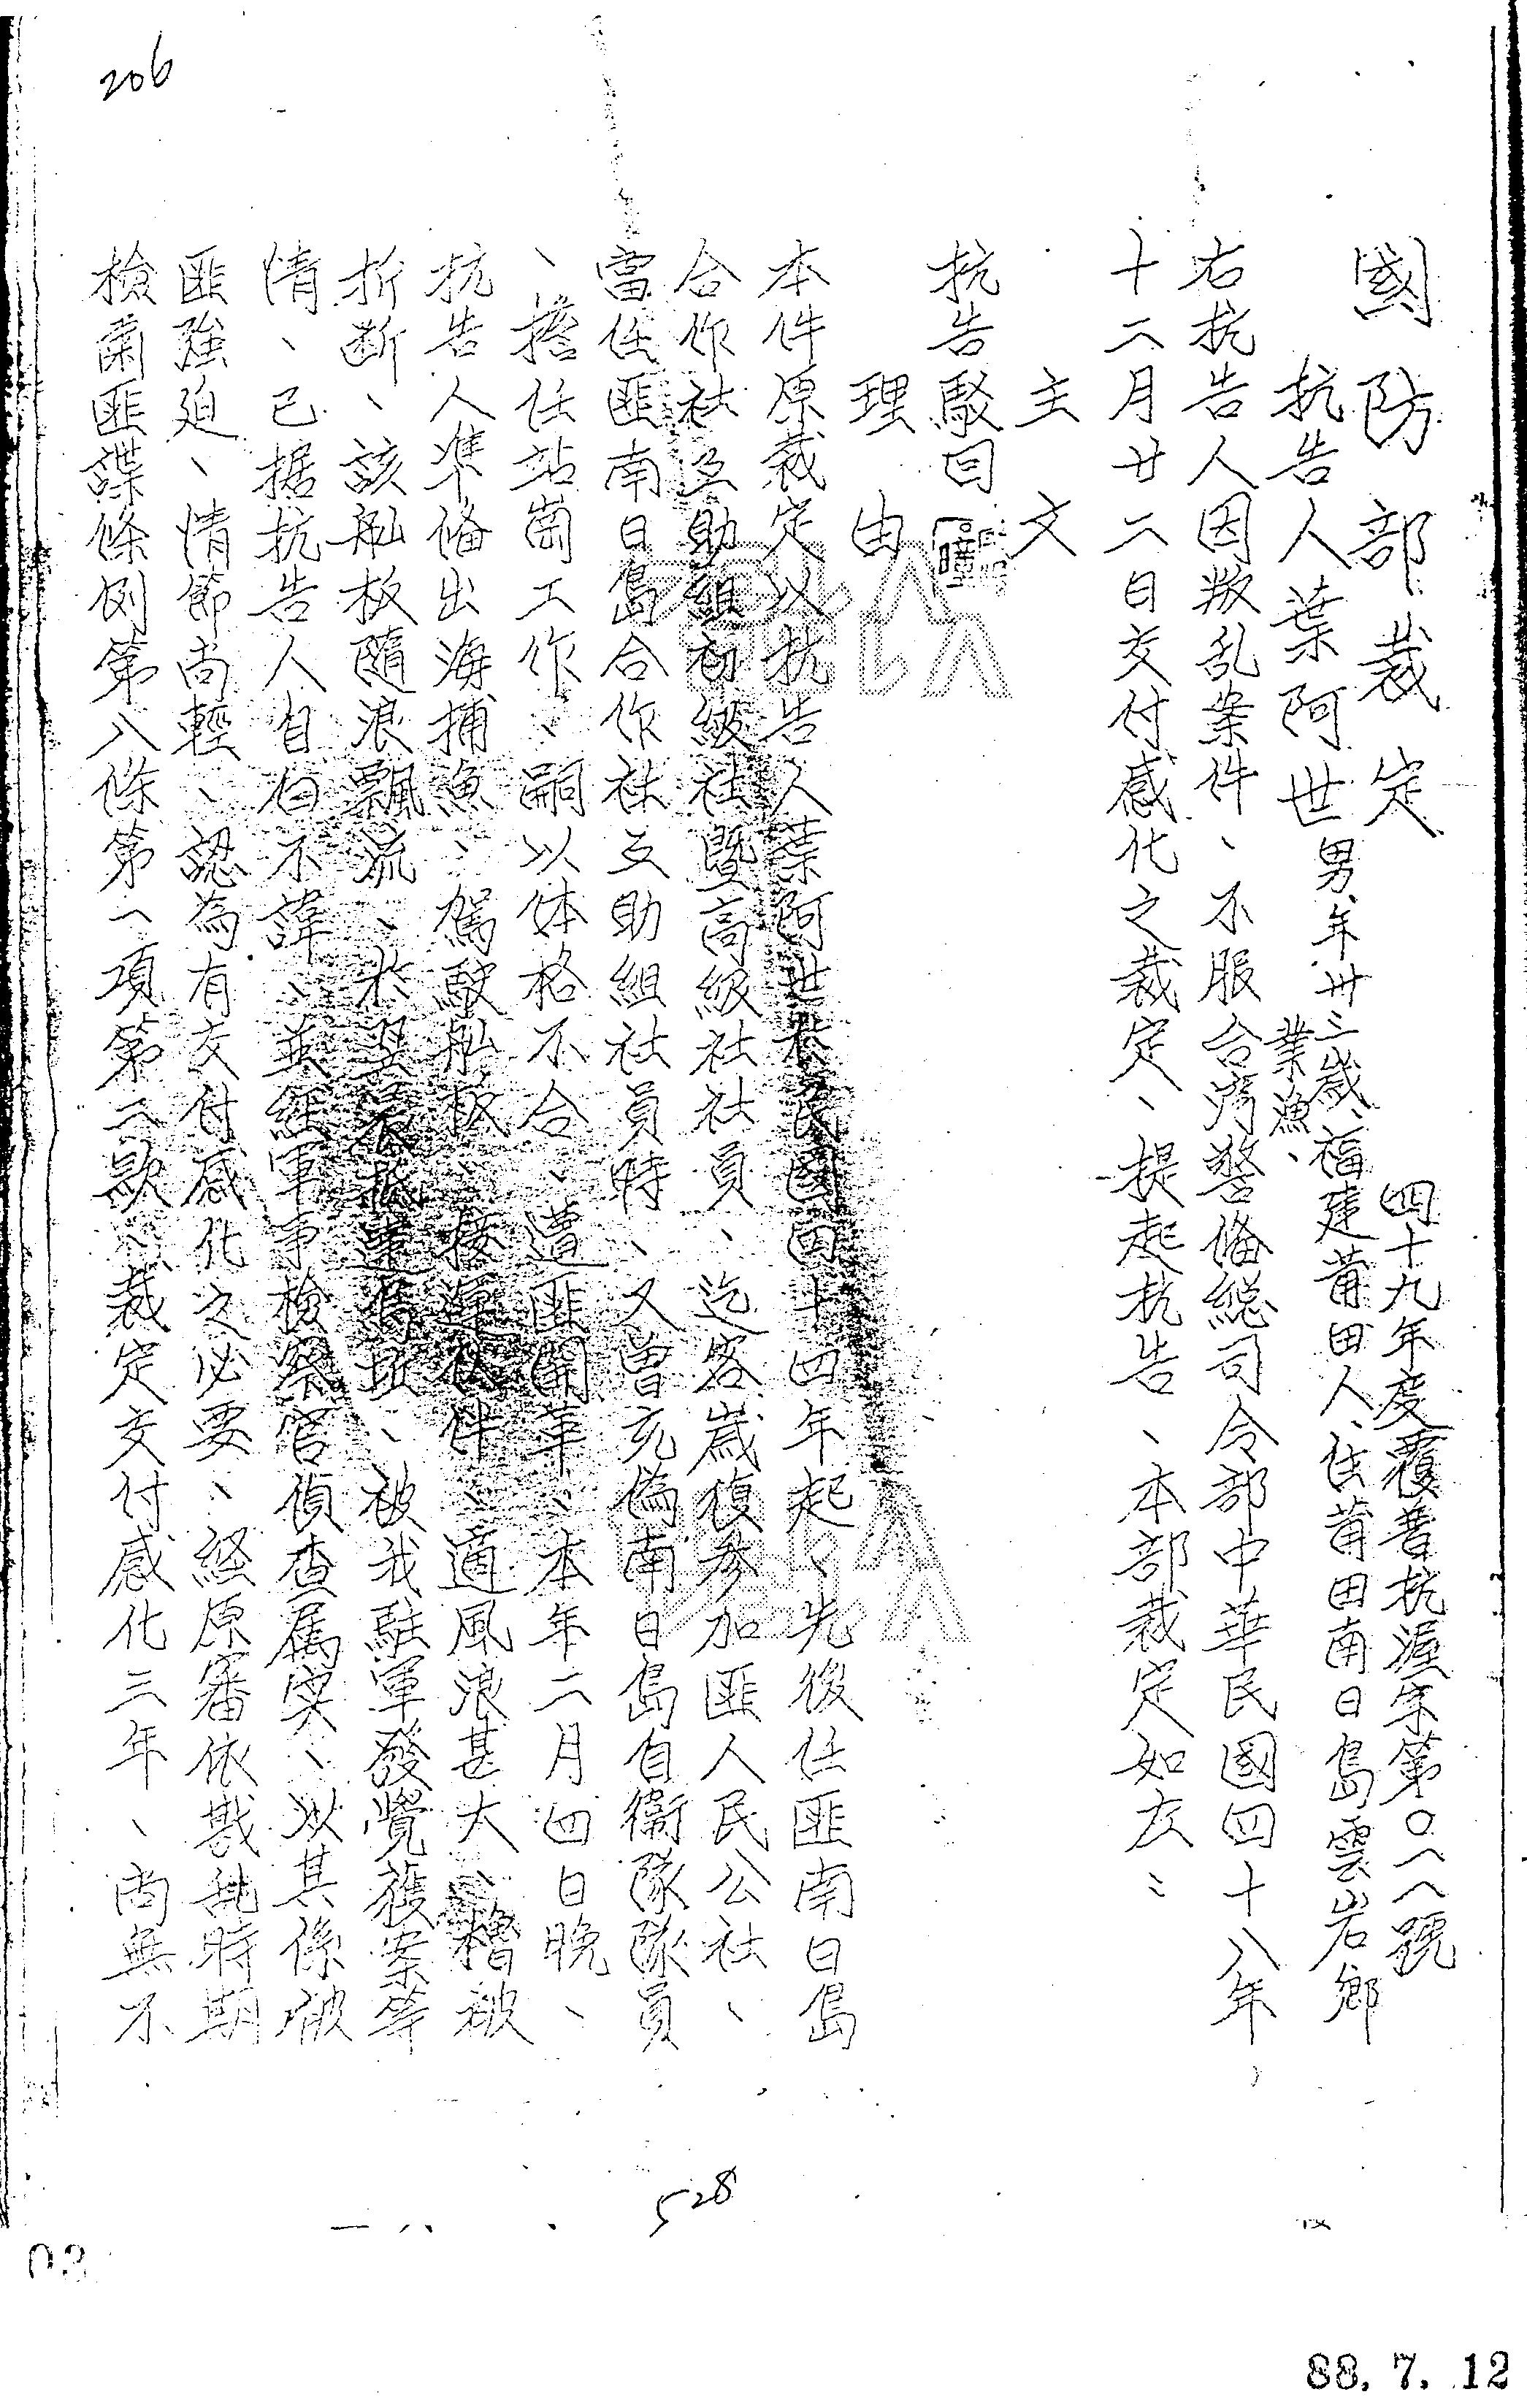 206
國防部裁定
四十九年度覆普抗渥字第〇一八號
抗告人葉阿世男年卅三歲、福建莆田人、住莆田南日島雲岩鄉
業漁、
右抗告人因叛乱案件、不服台灣警備總司令部中華民國四十八年
十二月廿二日交付感化之裁定、提起抗告、本部裁定如左:
主文
抗告駁回
理由
本件原裁定以抗告人葉阿世於民國四十四年起、先後任匪南日島
合作社互助組初級社暨高級社社員、迄客歲復參加匪人民公社、
當任匪南日島合作社互助組社員時、又曾充偽南日島自衛隊隊員
、擔任站崗工作、嗣以体格不合、遭匪開革、本年二月四日晚、
抗告人準備出海捕漁、駕駛舢板、接運伙伴、適風浪甚大、櫓被
折断、該舢板隨浪飄流、於翌晨抵達烏坵、被我駐軍發覺獲案等
情、已据抗告人自白不諱、並経軍事檢察官偵查属实、以其係被
匪強廹、情節尚輕、認為有交付感化之必要、経原審依戡乱時期
檢肅匪諜條例第八條第一項第二款、裁定交付感化三年、尚無不
528
88.7.12